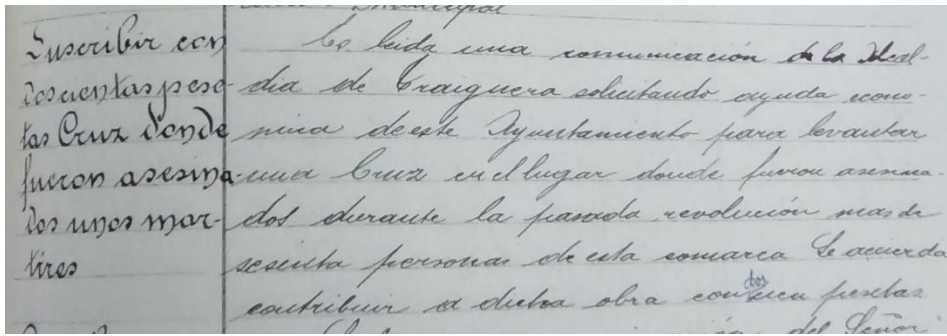 Municipal
Suscribir con
doscientas pese-
tas Cruz donde
fueron asesina-
dos unos mar-
tires
Es leida una comunicación de la Alcal-
dia de Traiguera solicitando ayuda econo-
mica de este Ayuntamiento para levantar
una Cruz en el lugar donde fueron asesina-
dos durante la pasada revolución mas de
sesenta personas de esta comarca Se acuerda
contribuir a dicha obra con doscien pesetas
del Señor